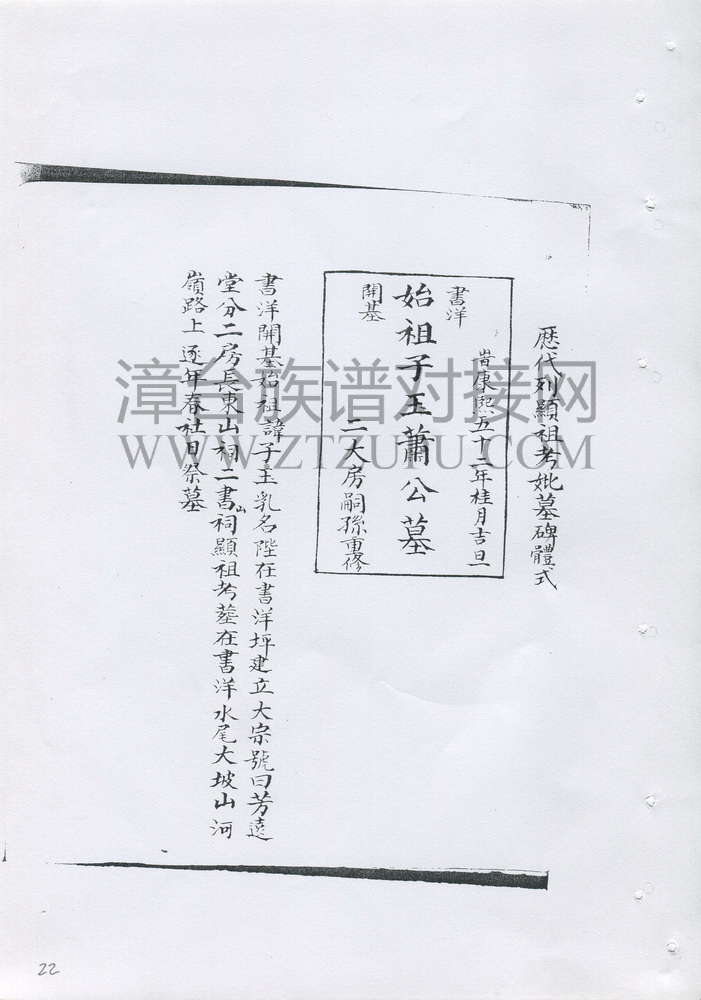 歷代列顯祖考妣墓碑體式
旹康熙五十二年桂月吉旦
書洋
開基
始祖子玉蕭公墓
二大房嗣孫重修
書洋開基始祖諱子玉乳名陞在書洋坪建立大宗號曰芳遠
堂分二房長東山祠二書山祠顯祖考墓在書洋水尾大坡山河
嶺路上逐年春社日祭墓
漳台族谱对接网
WWW.ZTZUPU.COM
22